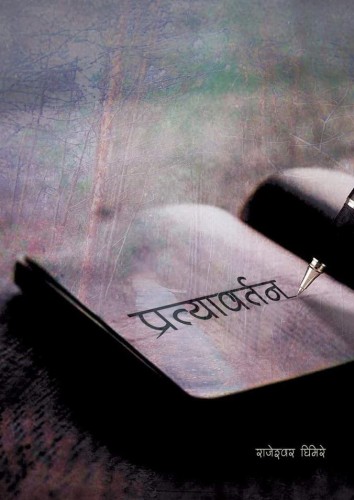 प्रत्यावर्तन
राजेश्वर घिमिरे